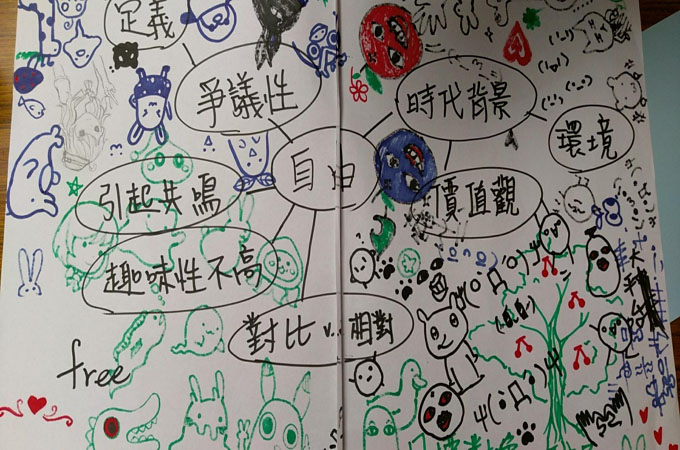 定義
爭議性
時代背景
環境
自由
引起共鳴
價值觀
趣味性不高
對比 v.. 相對
free